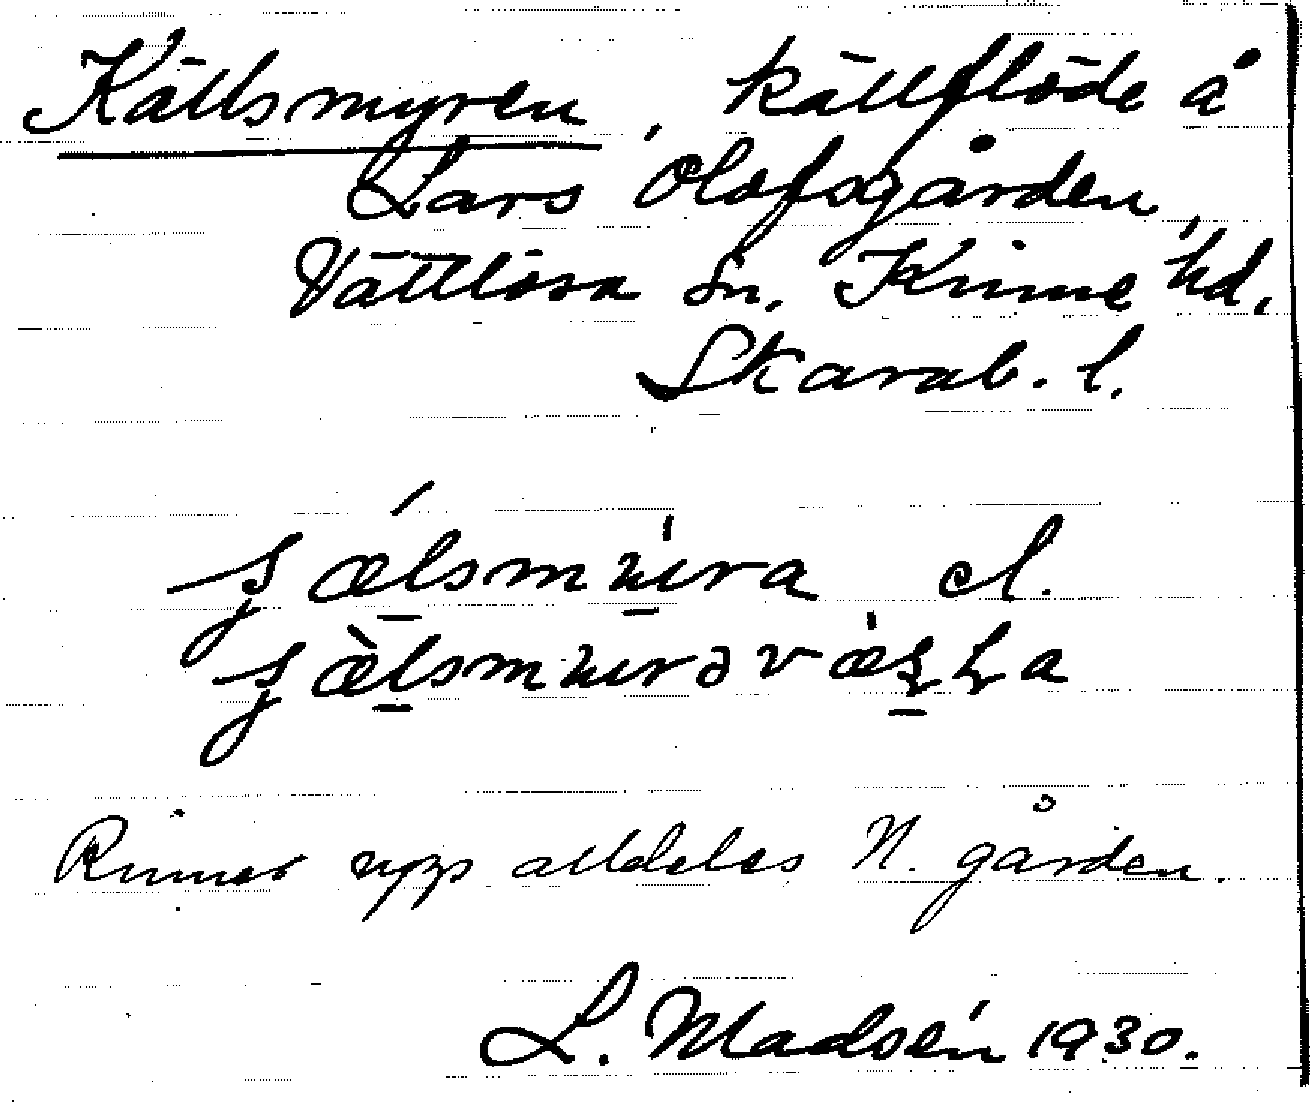 Källsmyren, källflöde å
Lars Olofsgården,
Vättlösa sn, Kinne hd,
Skarab. l.
el.
Rinner upp alldeles N. gården.
L. Madsén 1930.